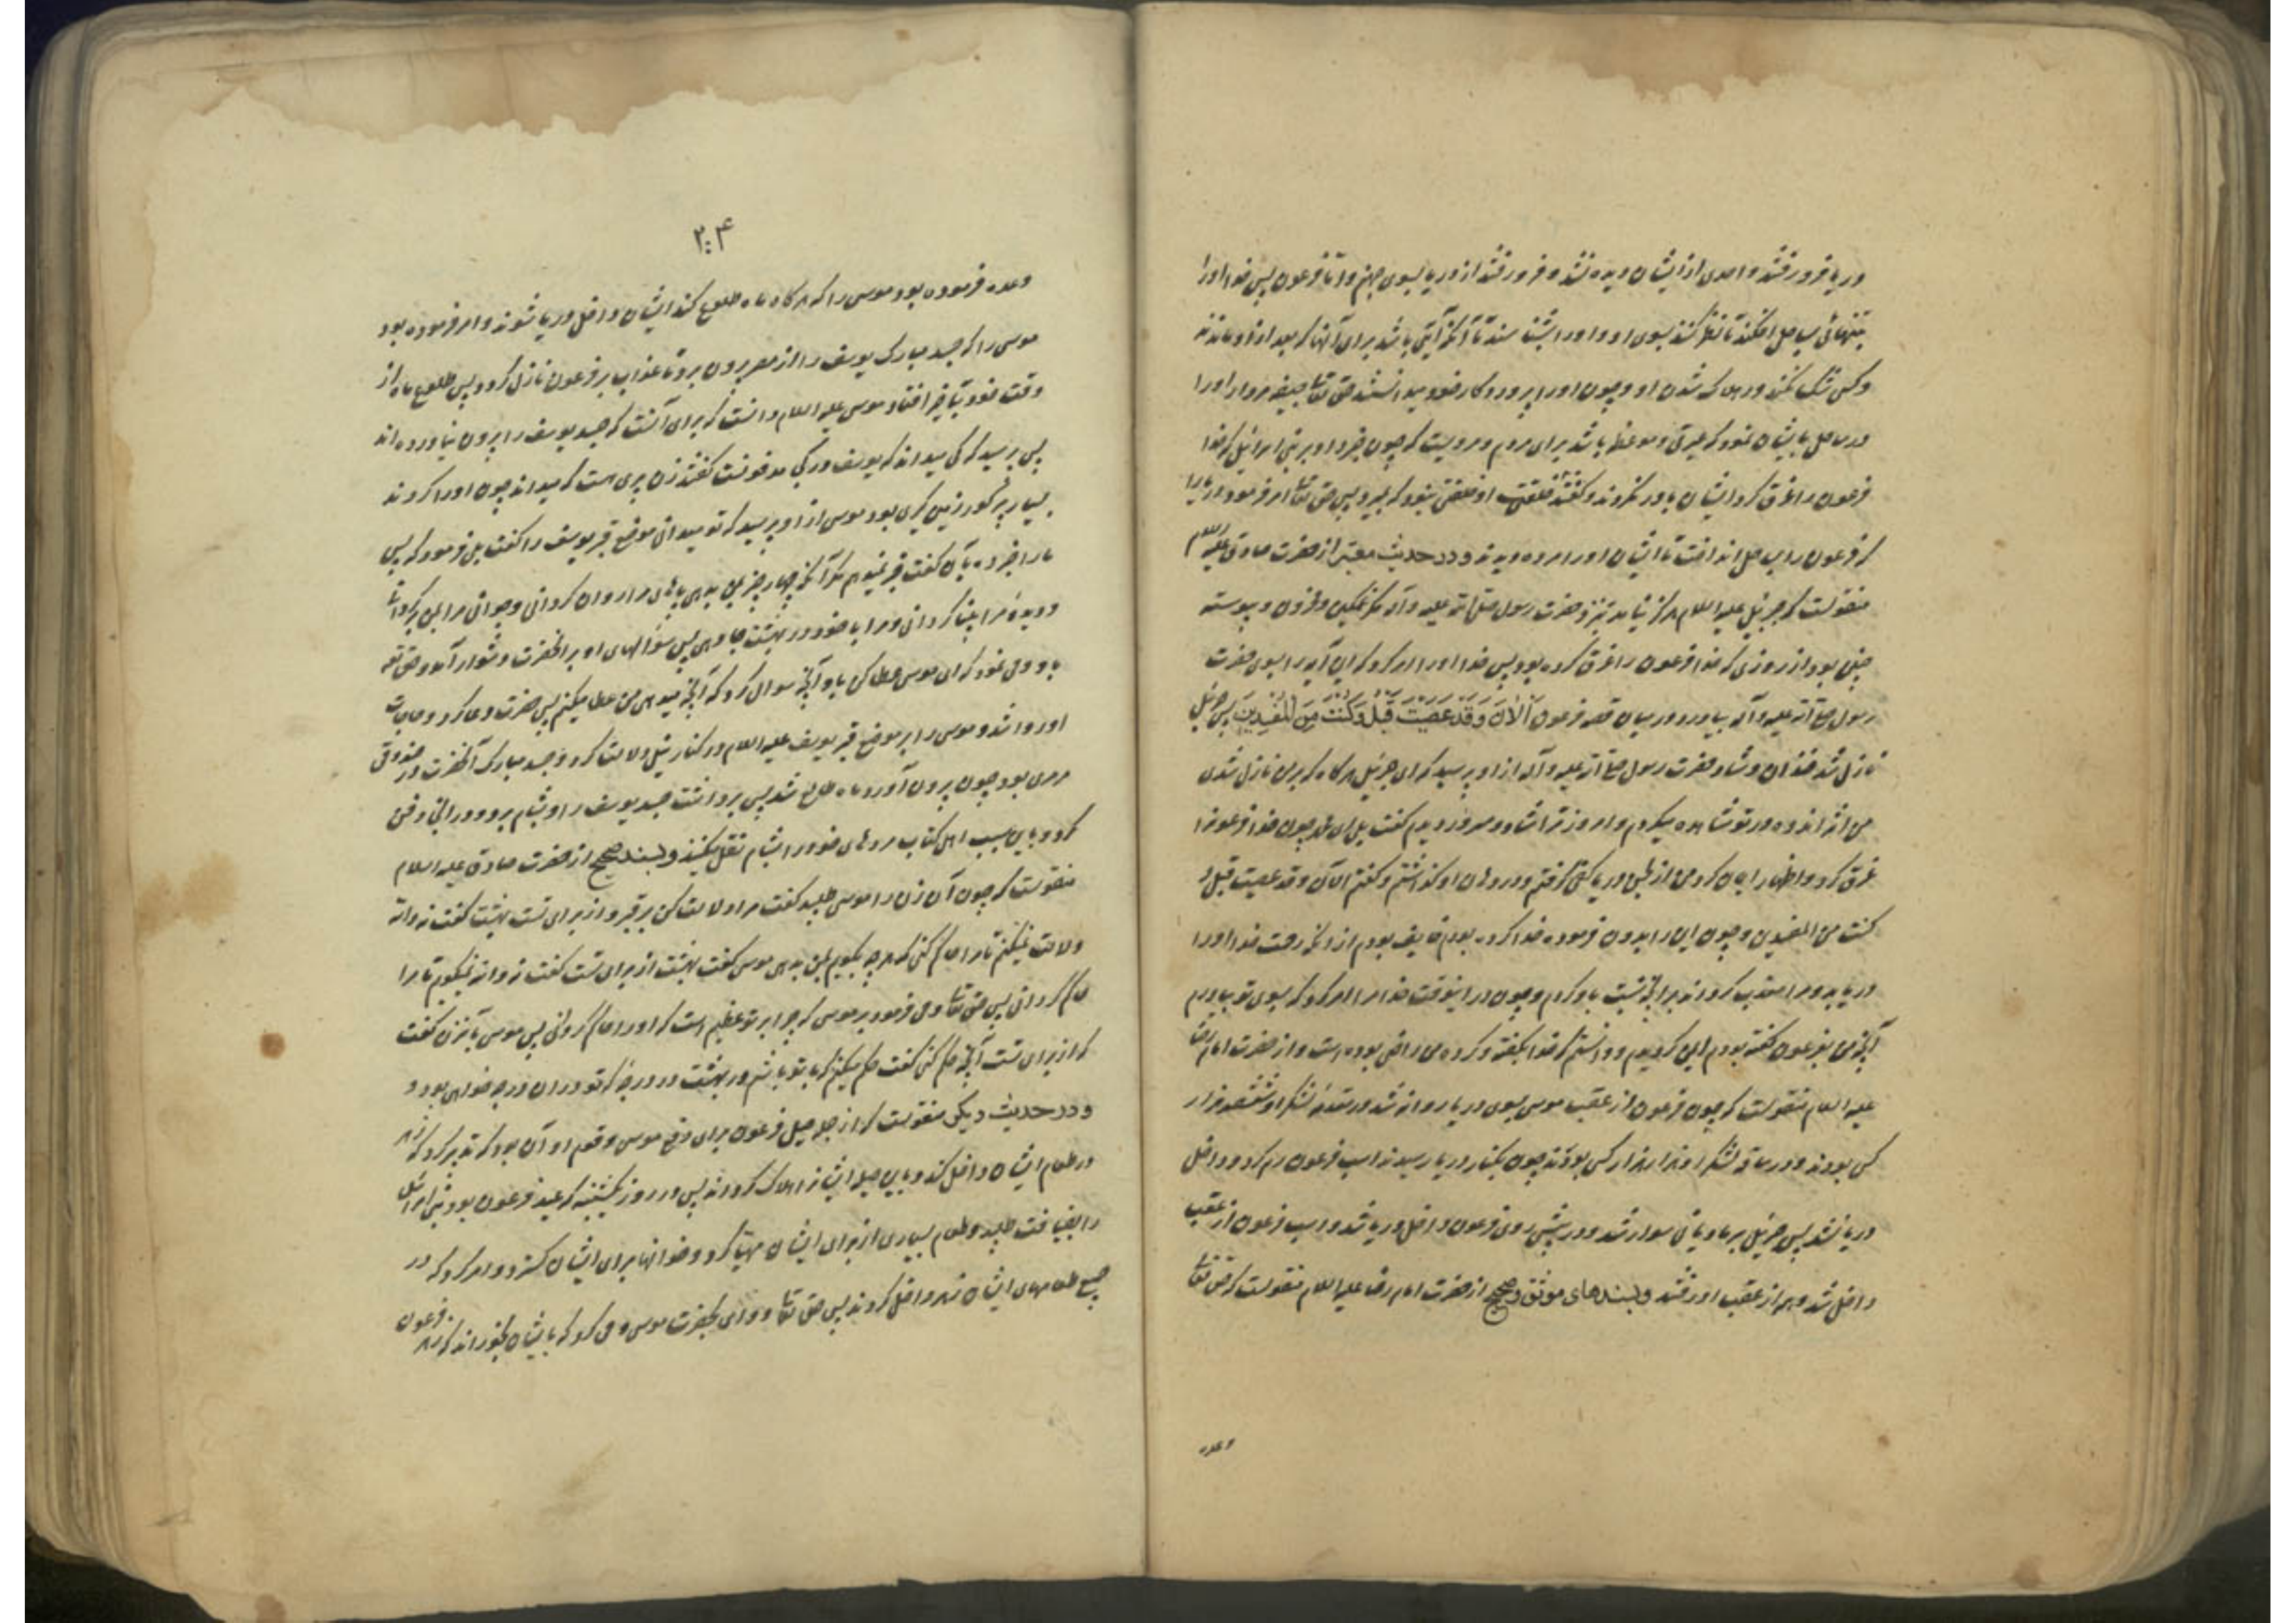 دریا فرو رفتند و احدی از ایشان دیده نشد و فرو رفتند از دریا بسوی جهنم و اما فرعون پس خدا او را
بتنهائی بساحل افکند تا نظر کنند بسوی او و او را بشناسند تا آنکه آیتی باشد برای آنها که بعد از او ماندند
و کسی شک نکند در هلاک شدن او و چون او را پروردگار خود میدانستند حق تعالی جیفه مردار او را
در ساحل بایشان نمود که عبرتی و موعظه باشد برای مردم و مرویست که چون خبر داد بر بنی اسرائیل که خدا
فرعون را غرق کرد ایشان باور نکردند و گفتند خلقت او خلقتی نبود که بمیرد پس حق تعالی امر فرمود دریا را
که فرعون را بساحل انداخت تا ایشان او را مرده دیدند و در حدیث معتبر از حضرت صادق علیه السلام
منقولست که جبرئیل علیه السلام هرگز نیامد بنزد حضرت رسول صلی الله علیه و آله مگر غمگین و محزون و پیوسته
چنین بود از روزی که خدا فرعون را غرق کرده بود پس خدا او را امر کرد که این آیه را بسوی حضرت
رسول صلی الله علیه و آله بیاورد در بیان قصه فرعون آلْآنَ وَقَدْ عَصَيْتَ قَبْلُ وَكُنْتَ مِنَ الْمُفْسِدِينَ پس جبرئیل
نازل شد خندان و شاد حضرت رسول صلی الله علیه و آله از او پرسید که ای جبرئیل هرگاه که بر من نازل شدی
من اثر اندوه در تو مشاهده میکردم و امروز ترا شاد و مسرور دیدم گفت بلی ای محمد چون خدا فرعونرا
غرق کرد و اظهار ایمان کرد من از طین دریا کفی گرفتم و در دهان او گذاشتم و گفتم الآن و قد عصیت قبل و
کنت من المفسدین و چون این را بدون فرموده خدا کرده بودم خایف بودم از آنکه رحمت خدا او را
دریابد و مرا معذب گرداند برانچه نسبت باو کردم و چون در اینوقت خدا مرا امر کرد که بسوی تو بیاورم
آنچه من بفرعون گفته بودم ایمن گردیدم و دانستم که خدا بگفته و کرده من راضی بوده است و از حضرت امام رضا
علیه السلام منقولست که چون فرعون از عقب موسی بسوی دریا روانه شد در مقدمه لشکر او ششصد هزار
کس بودند و در ساقه لشکر او هزار هزار کس بودند چون بکنار دریا رسیدند اسب فرعون رم کرد و داخل
دریا نشد پس جبرئیل بر مادیانی سوار شد و در پیش روی فرعون داخل دریا شد و اسب فرعون از عقب
داخل شد و همه از عقب او رفتند و بسندهای موثق و صحیح از حضرت امام رضا علیه السلام منقولست که حق تعالی
وعده
۲۰۴
وعده فرموده بود موسی را که هرگاه ماه طلوع کند ایشان داخل دریا شوند و امر فرموده بود
موسی را که جسد مبارک یوسف را از مصر بیرون برد تا عذاب بر فرعون نازل گردد پس طلوع ماه از
وقت خود بتاخیر افتاد موسی علیه السلام دانست که برای آنست که جسد یوسف را بیرون نیاورده اند
پس پرسید که کی میداند که یوسف در کجا مدفونست گفتند زن پیری هست که میداند چون او را آوردند
بسیار پیر و کور و زمین گیری بود موسی از او پرسید که تو میدانی موضع قبر یوسف را گفت بلی فرمود که پس
ما را خبر ده بآن گفت خبر نمیدهم مگر آنکه چهار چیز بمن بدهی پاهای مرا روان گردانی و جوانی مرا بمن برگردانی
و دیده مرا بینا گردانی و مرا با خود در بهشت جا دهی پس سؤالهای او بر آنحضرت دشوار آمد و حق تعه
باو وحی نمود که ای موسی عطا کن باو آنچه سوال کرد که آنچه میدهی من عطا میکنم پس حضرت دعا کرد و حاجات
او روا شد و موسی را بر موضع قبر یوسف علیه السلام در کنار نیل دلالت کرد و جسد مبارک آنحضرت در صندوق
مرمری بود چون بیرون آورد ماه طالع شد پس برداشت جسد یوسف را و بشام برد و در انجا دفن
کرد و باین سبب اهل کتاب مردهای خود را بشام نقل میکنند و بسند صحیح از حضرت صادق علیه السلام
منقولست که چون آن زن را موسی طلبید گفت مرا دلالت کن بر قبر و از برای تست بهشت گفت نه والله
دلالت نمیکنم تا مرا حاکم کنی که هر چه بگویم بمن بدهی موسی گفت بهشت از برای تست گفت نه والله نمیگویم تا مرا
حاکم گردانی پس حق تعالی وحی فرمود بر موسی که چرا بر تو عظیم است که او را حاکم گردانی پس موسی بآنزن گفت
که از برای تست آنچه حکم کنی گفت حکم میکنم که با تو باشم در بهشت در درجه که تو در ان درجه خواهی بود و
و در حدیث دیگر منقولست که از جمله حیل فرعون برای دفع موسی و قوم او آن بود که تدبیر کرد که زهر
در طعام ایشان داخل کند و باین حیله ایشانرا هلاک گرداند پس در روز یکشنبه که عید فرعون بود بنی اسرائیل
را بضیافت طلبید و طعام بسیاری از برای ایشان مهیا کرد و خوانها برای ایشان گسترد و امر کرد که در
جمیع طعامهای ایشان زهر داخل کردند پس حق تعالی دوائی بحضرت موسی وحی کرد که بایشان بخوراند که زهر فرعون